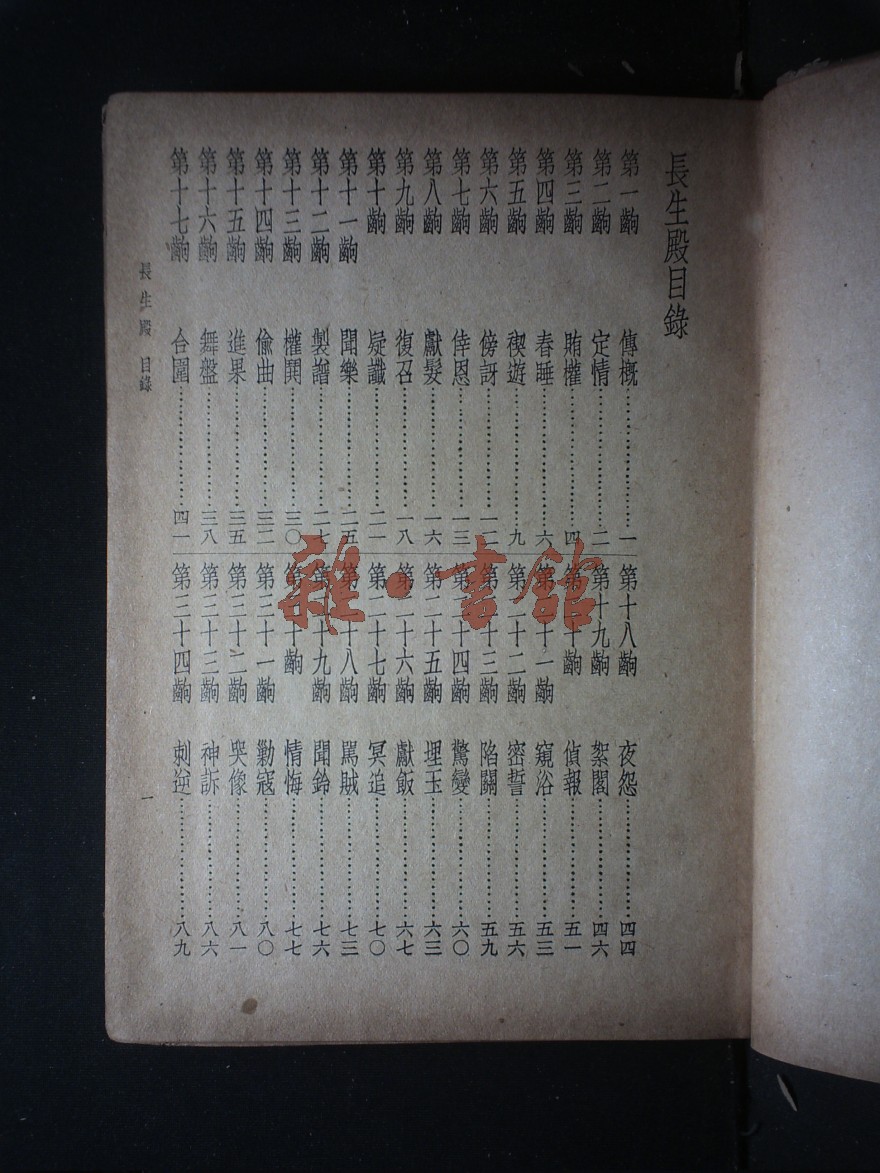 長生殿目錄
第一齣 傳概……………………一
第二齣 定情……………………二
第三齣 賄權……………………四
第四齣 春睡……………………六
第五齣 禊遊……………………九
第六齣 傍訝……………………一二
第七齣 倖恩……………………一三
第八齣 獻髮……………………一六
第九齣 復召……………………一八
第十齣 疑讖……………………二一
第十一齣 聞樂……………………二五
第十二齣 製譜……………………二七
第十三齣 權鬨……………………三〇
第十四齣 偸曲……………………三二
第十五齣 進果……………………三五
第十六齣 舞盤……………………三八
第十七齣 合圍……………………四一
第十八齣 夜怨……………………四四
第十九齣 絮閣……………………四六
第二十齣 偵報……………………五一
第二十一齣 窺浴……………………五三
第二十二齣 密誓……………………五六
第二十三齣 陷關……………………五九
第二十四齣 驚變……………………六〇
第二十五齣 埋玉……………………六三
第二十六齣 獻飯……………………六七
第二十七齣 冥追……………………七〇
第二十八齣 罵賊……………………七三
第二十九齣 聞鈴……………………七六
第三十齣 情悔……………………七七
第三十一齣 勦寇……………………八〇
第三十二齣 哭像……………………八一
第三十三齣 神訴……………………八六
第三十四齣 刺逆……………………八九
長生殿 目錄 一
雜·書館